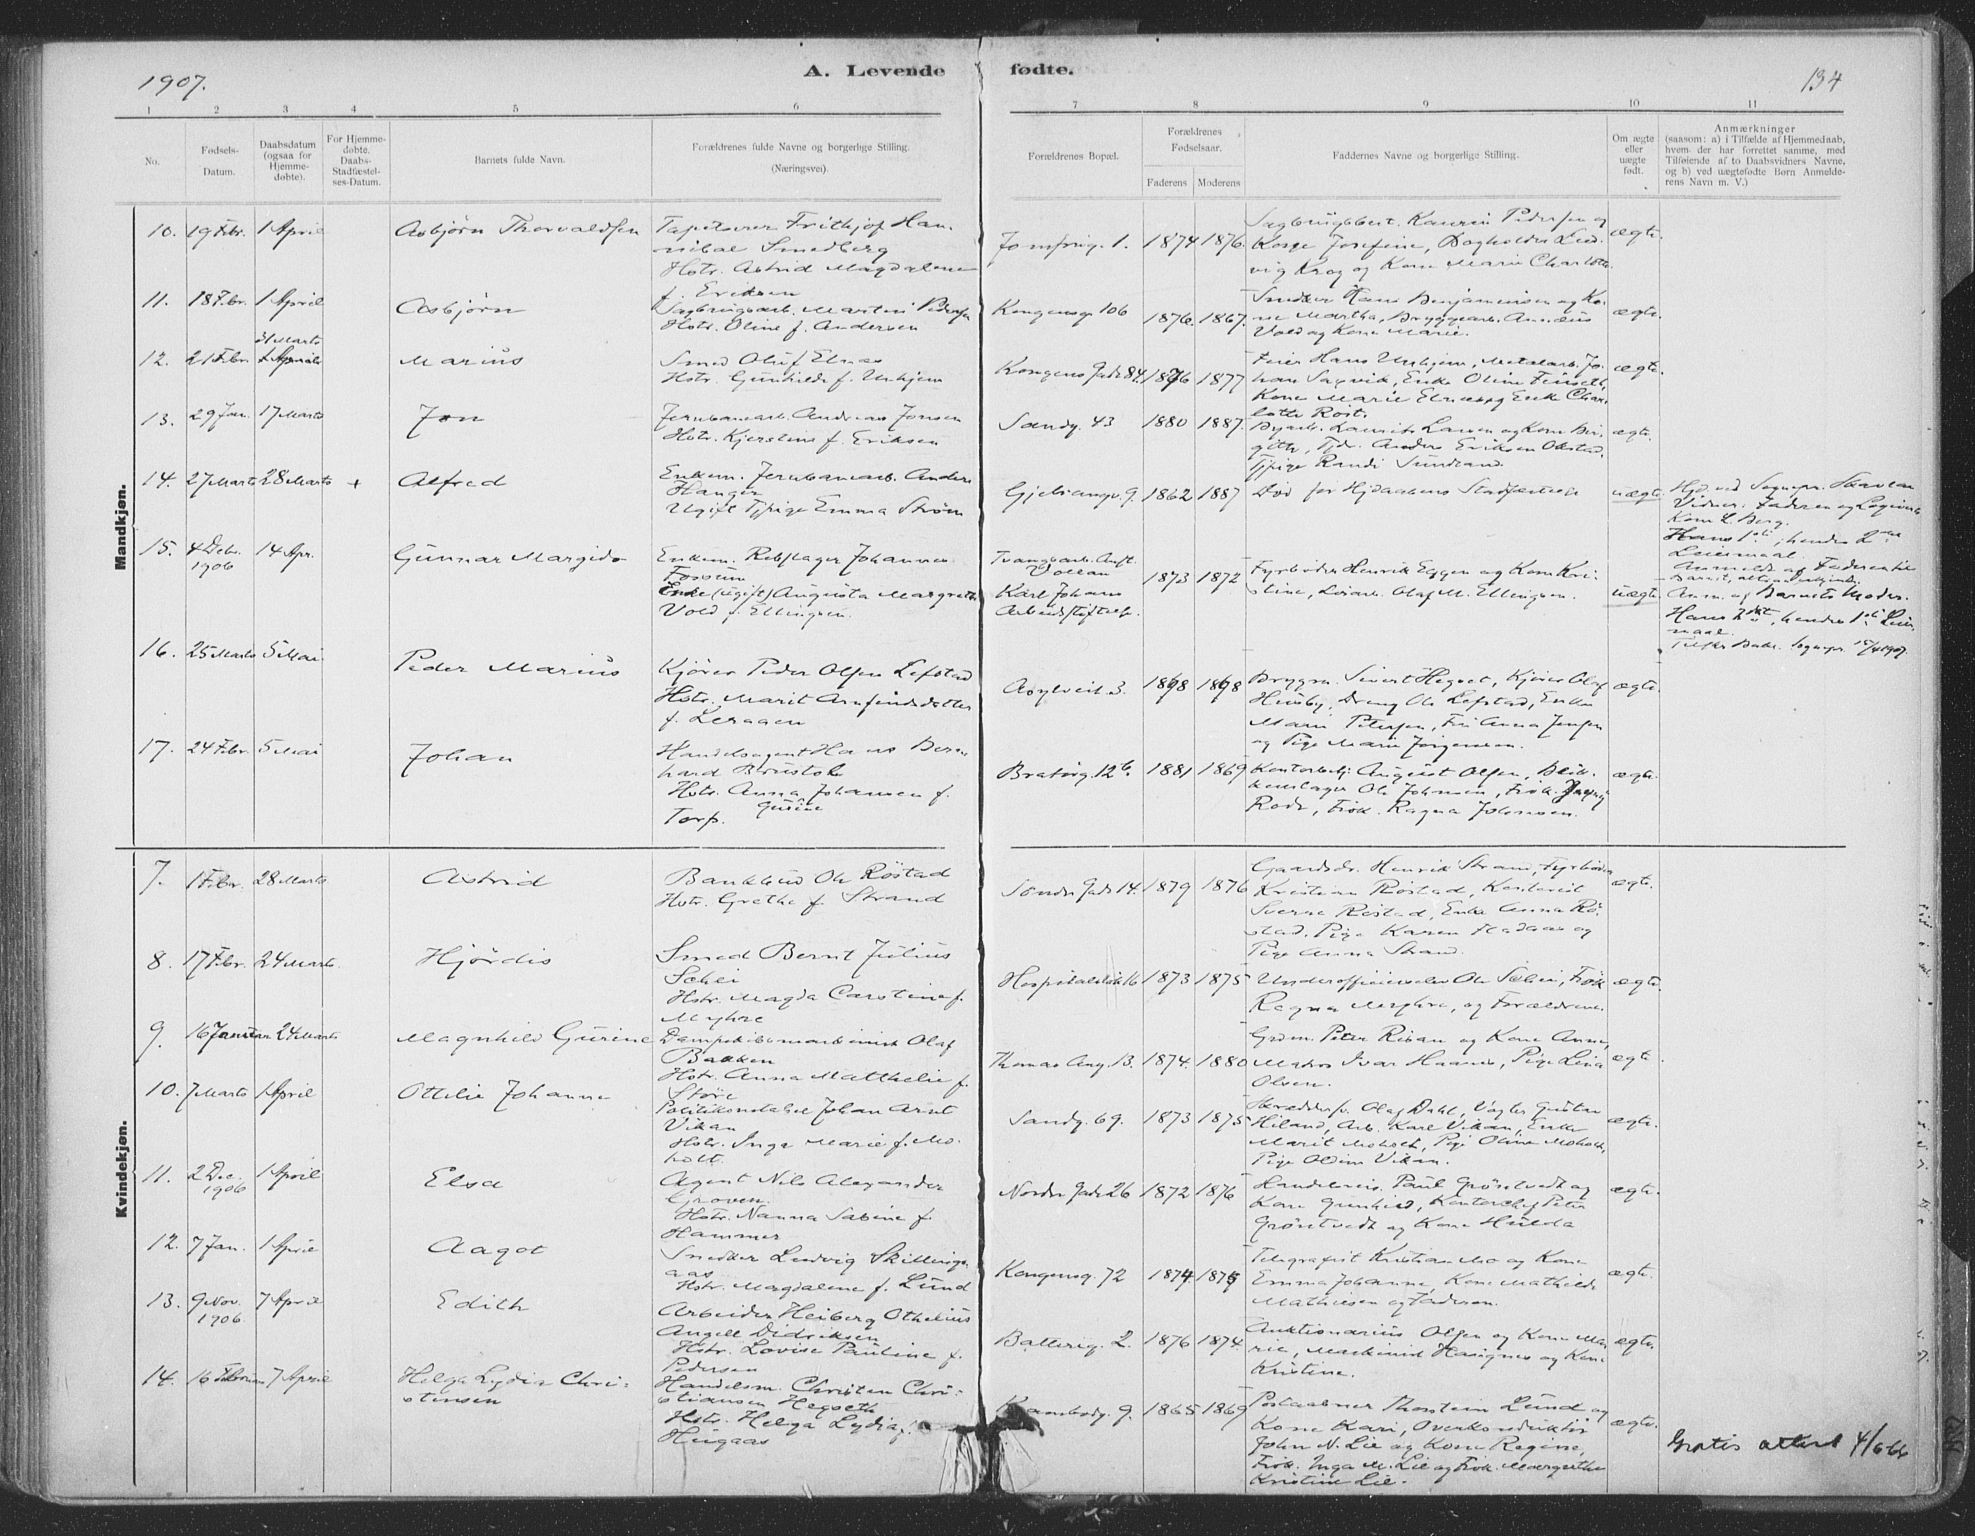 1907.
A. Levende fødte.
134
1 2 3 4 5 6 7 8 9 10 11
No.
Fødsels-Datum.
Daabsdatum (ogsaa for Hjemme-døbte).
For Hjemme-døbte. Daabs-Stadfæstel-ses-Datum.
Barnets fulde Navn.
Forældrenes fulde Navne og borgerlige Stilling. (Næringsvei).
Forældrenes Bopæl.
Forældrenes Fødselsaar.
Faderens Moderens
Faddernes Navne og borgerlige Stilling.
Om ægte eller uægte født.
Anmærkninger
(saasom: a) i Tilfælde af Hjemmedaab,
hvem der har forrettet samme, med
Tilføiende af to Daabsvidners Navne,
og b) ved uægtefødte Børn Anmelde-
rens Navn m. V.)
Mandkjøn.
10. 19 Febr. 1 April Asbjørn Thorvaldsen
Tapetserer Frithjof Han-
nibal Smedberg
Hstr. Astrid Magdalene
f. Eriksen
Jomfrug. 1. 1874 1876.
Kone Josefine,
vig Krog og Kone Marie Charlotte.
ægte.
11. 18 Febr. 1 April Asbjørn
Sagbrugsarb. Martin Pedersen
Hstr. Oline f. Andersen
Kongensg. 106 1876. 1867.
Snedker Hans Benjaminsen og Ko-
ne Martha, Bryggearb.
Vold og Kone Marie.
ægte.
31 Marts
12. 21 Febr. 1 April Marius
Smed Oluf Elnes
Hstr. Gunhilde f.
Kongens Gade 84. 1876 1877
Feier Hans
Kone Marie Elnes og Enke Char-
lotte Røst.
ægte.
13. 29 Jan. 17 Marts Jon
Jernbanearb. Andreas Jonsen
Hstr. Kjerstine f. Eriksen
Sandg. 43 1880 1887.
Byarb. Laurits Larsen og Kone Bir-
gitte, Tjd. Anders Eriksen
Tjpige Randi Sundland.
ægte.
14. 27 Marts 28 Marts + Alfred
Enkem. Jernbanearb. Anders
Hanger
Ugift Tjpige Emma Strøm
1862 1887
Død før Hjdaabens Stadfæstelse
uægte.
Hjd. ved Sognepr.
Vidner: Faderen og
Kone L. Berg.
Hans 1ste, hendes 2det
Leiermaal.
Anmeldt af Faderen
15. 4 Decbr. 1906 14 Apr. Gunnar Margido
Enkem. Rebslager Johannes
Fossum
Enke (ugift) Augusta Margrethe
Vold f. Ellingsen.
Tvangsarb. Anst.
Vollan
Karl Johans
Arbeidsstiftelse.
1873 1872
Fyrbøder Henrik Eggen og Kone Kri-
stine, Løsarb. Olaf M. Ellingsen.
uægte.
Anm. af Barnets Moder.
Hans 2det, hendes 1ste Leier-
maal.
16. 25 Marts 5 Mai Peder Marius
Kjører Peder Olsen Lefstad
Hstr. Marit Arnfindsdatter
f. Leraaen
Asylveit. 3. 1868 1868
Bryggm. Sivert Hegset, Kjører Olaf
Husby, Dreng Ole Lefstad, Enke
Marie Petersen, Frk Anna Jensen
og Pige Marie Jørgensen.
ægte.
17. 24 Febr. 5 Mai Johan
Handelsagent Hans Bern-
hard Brustole
Hstr. Anna Johansen f.
Gusine
Torp.
Bratørg. 12b. 1881 1869
Kontorbetj. August Olsen, Blik-
kenslager Ole Johnsen, Frøk.
Rode, Frøk. Ragna Johansen.
ægte.
Kvindekjøn.
7. 1 Febr. 28 Marts Astrid
Bankbud Ole Røstad
Hstr. Grethe f. Strand
Søndre Gade 14. 1879 1876
Gaardbr. Henrik Strand, Fyrbøder
Kristian Røstad, Kontorist
Sverre Røstad, Enke Anna Rø-
stad, Pige Karen
Pige Anna Strand.
ægte.
8. 17 Febr. 24 Marts. Hjørdis
Smed Bernt Julius
Schei
Hstr. Magda Caroline f.
Myhre
Hospitalsløkk. 16 1873 1875
Underofficerselev Ole Schei, Frøk.
Ragna Myhre, og Forældrene.
ægte.
9. 16 Januar 24 Marts Magnhild Gurine
Dampskibsmaskinist Olaf
Bakken
Hstr. Anna Mathelie f.
Støre
Thomas Ang. 13. 1874. 1880
Grdm. Peter Risan og Kone Anne,
Matros Ivar Haanes, Pige Lina
Olsen.
ægte
10. 7 Marts 1 April Ottelie Johanne
Politikonstabel Johan Arnt
Vikan
Hstr. Inga Marie f. Mo-
holt.
Sandg. 69. 1873 1875
Skrædders. Olaf Dahl, Vogter Gustav
Hiland, Arb. Karl Vikan, Enke
Marit Moholt, Pige Oline Moholt,
Pige Oline Vikan.
ægte.
11. 2 Dec. 1906 1 April Elsa
Agent Nils Alexander
Groven.
Hstr. Nanna Sabine f.
Hammer
Nordre Gade 26 1872 1876
Handelsreis. Paul Grøntvedt og
Kone Gunhild, Kontorchef Peter
Grøntvedt og Kone Hulda
ægte.
12. 7 Jan. 1 April Aagot
Snedker Ludvig Skillings-
aas
Hstr. Magdalene f. Lund
Kongensg. 72 1874 1875
Telegrafist Kristian Mo og Kone
Emma Johanne, Kone Mathilde
Mathiesen og Faderen.
ægte.
13. 9 Nov. 1906 7 April Edith
Arbeider Heiberg Othelius
Angell Didriksen
Hstr. Lovise Pauline f.
Pedersen
Batterig. 2. 1876 1874.
Auktionarius Olsen og Kone Ma-
rie, Maskinist Hasignes og Kone
Kristine.
ægte.
14. 16 Februar 7 April Helga Lydia Chri-
stensen
Handelsm. Christen Chri-
stiansen Hegseth
Hstr. Helga Lydia f.
Heigaas
9. 1865 1869
Postaabner Thorstein Lund og
Kone Kari, Overkonduktør
John N. Lie og Kone Regine,
Frøk. Inga M. Lie og Frøk. Margrethe
Kristine Lie.
ægte.
Gratis attest 4/6-66